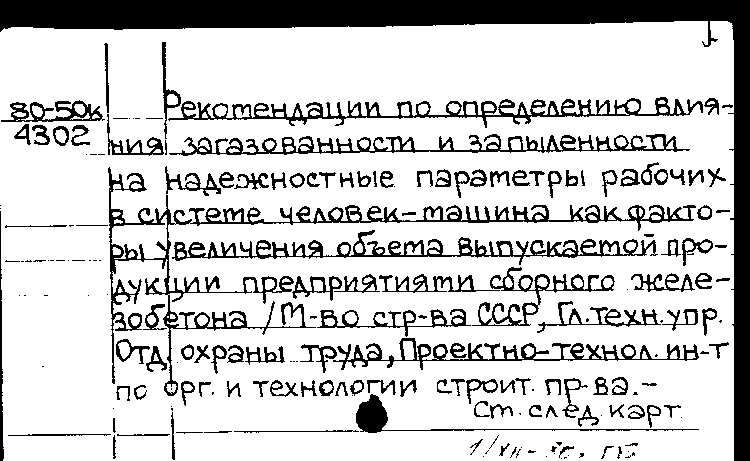 80-50к
4302
Рекомендации по определению влия-
ния загазованности и запыленности
на надежностные параметры рабочих
в системе человек-машина как факто-
ры увеличения объема выпускаемой про-
дукции предприятиями сборного желе-
зобетона /М-во стр-ва СССР, Гл.техн.упр.
Отд. охраны труда, Проектно-технол. ин-т
по орг. и технологии строит. пр-ва.-
См. след. карт.